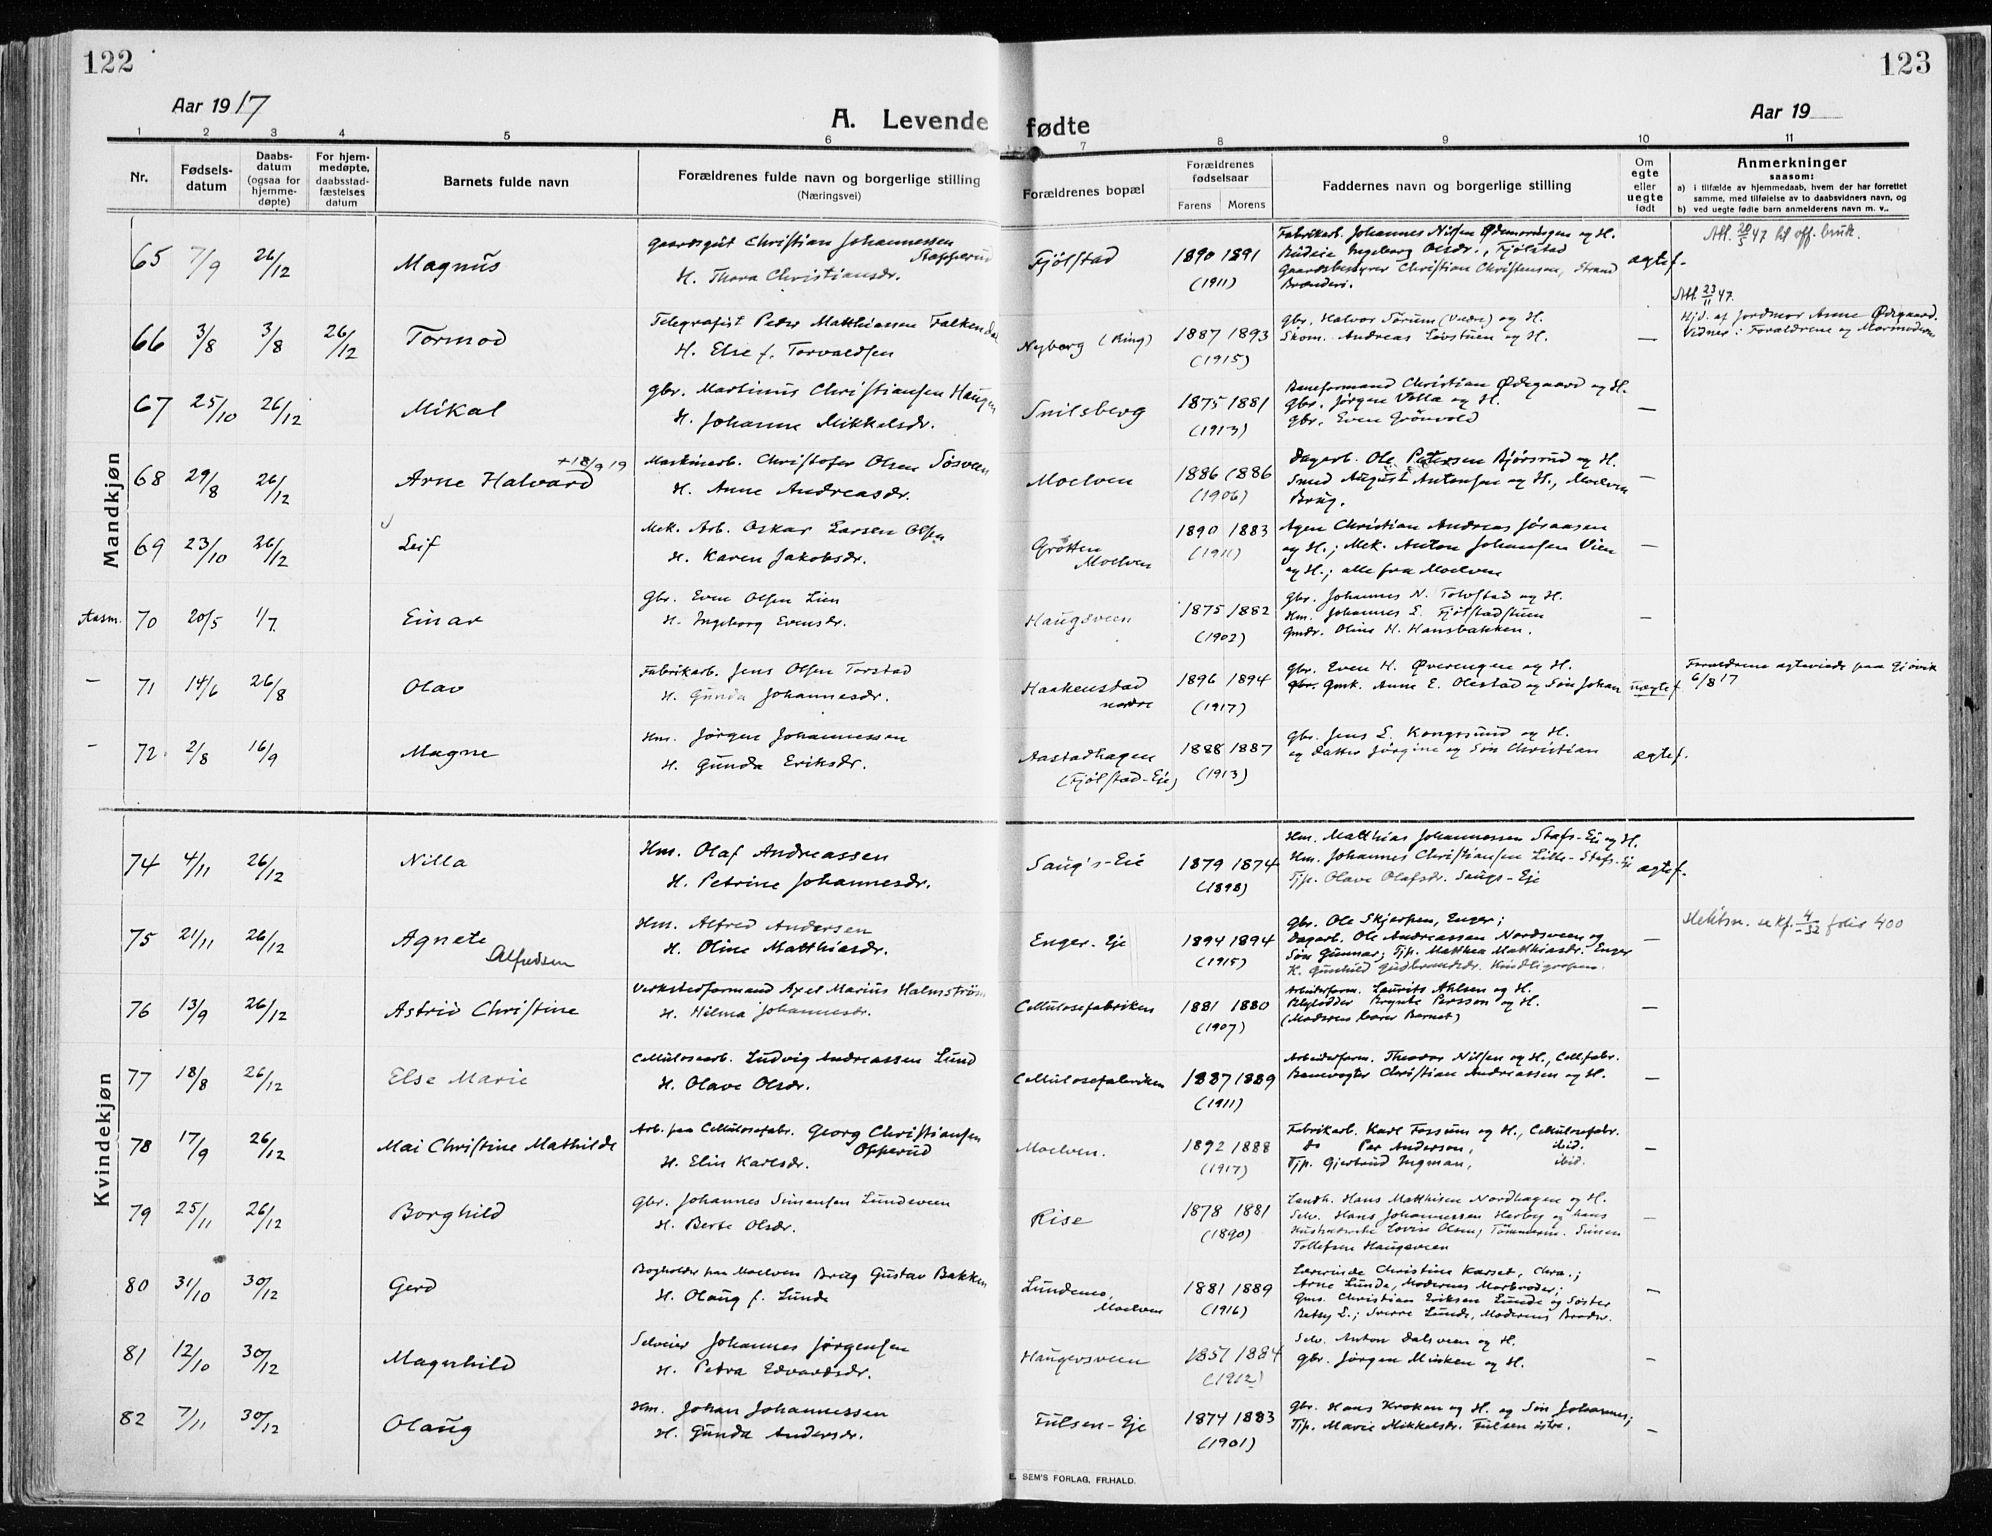 122
123
Aar 1917
A. Levende fødte
Aar 19
1 2 3 4 5 6 7 8 9 10 11
Nr.
Fødsels-
datum
Daabs-
datum
(ogsaa for
hjemme-
døpte)
For hjem-
medøpte,
daabsstad-
fæstelses
datum
Barnets fulde navn
Forældrenes fulde navn og borgerlige stilling
(Næringsvei)
Forældrenes bopæl
Forældrenes
fødselsaar
Farens Morens
Faddernes navn og borgerlige stilling
Om
egte
eller
uegte
født
Anmerkninger
saasom:
a) i tilfælde av hjemmedaab, hvem der har forrettet
samme, med tilføielse av to daabsvidners navn, og
b) ved uegte fødte barn anmelderens navn m. v..
Mandkjøn
65 7/9 26/12 Magnus
Gaardsgut Christian Johannessen
Stapperud
H. Thora Christiansdr.
Fjølstad
1890 1891
(1911)
Fabrikarb. Johannes Nilsen Ødemarksgen og H.
Budeie Ingeborg Olsdr., Fjølstad
Gaardsbestyrer Christian Christensen, Strand
Brænderi.
ægtef.
Att. 20/5 47 til off. bruk.
66 3/8 3/8 26/12 Tormod
Telegrafist Peder Matthiassen Falkendal
H. Else f. Torvaldsen
Nyborg (Ring)
1887 1893
(1915)
gbr. Halvor Sørum (Vedre) og H.
Skom. Andreas Løvstuen og H.
—
Att. 23/11 47.
Hjd. af Jordmor Anne Ødegaard.
Vidner: Forældrene og Mormoderen
67 25/10 26/12 Mikal
gbr. Martinus Christiansen Haugen
H. Johanne Mikkelsdr.
Snilsberg
1875 1881
(1913)
Baneformand Christian Ødegaard og H.
gbr. Jørgen Volla og H.
gbr. Even Grønvold
—
68 29/8 26/12 Arne Halvard +18/9 19
Maskinarb. Christofer Olsen Søsveen
H. Anne Andreasdr.
Moelven
1886 1886
(1906)
Dagarb. Ole Petersen Bjørsrud og H.
Smed August Antonsen og H., Moelven
Brug.
—
69 23/10 26/12 Leif
Mek. Arb. Oskar Larsen Olsen
H. Karen Jakobsdr.
Grøtten
Moelven
1890 1883
(1911)
Agen Christian Andreas Jøraasen
og H.; Mek. Anton Johansen Vien
og H.; alle fra Moelven
—
Aasm. 70 20/5 1/7 Einar
Gbr. Even Olsen Lien
H. Ingeborg Evensdr.
Haugsveen
1875 1882
(1902)
gbr. Johannes N. Tolvstad og H.
Hm. Johannes E. Fjølstadstuen
gmdr. Oline H. Hansbakken.
—
— 71 14/6 26/8 Olav
Fabrikarb. Jens Olsen Torstad
H. Gunda Johannesdr.
Haakenstad
nordre
1896 1894
(1917)
gbr. Even H. Øverengen og H.
gbr. Gmk. Anne E. Olestad og Søn Johan
uægtef.
Forældrene ægteviede paa Gjøvik
6/8 17
— 72 2/8 16/9 Magne
Hm. Jørgen Johannessen
H. Gunda Eriksdr.
Aastadhagen
(Fjølstad-Eje)
1888 1887
(1913)
gbr. Jens L. Kongssund og H.
og Datter Jørgine og Søn Christian
ægtef.
Kvindekjøn
74 4/11 26/12 Nilla
Hm. Olaf Andreassen
H. Petrine Johannesdr.
Saug's-Eie
1879 1874
(1898)
Hm. Matthias Johannessen Stafs-Ei og H.
Hm. Johannes Christiansen Lille-Stafs-Ei
Tjp. Olave Olafsdr. Saugs-Eje
ægtef.
75 21/11 26/12 Agnete
Alfredsen
Hm. Alfred Andersen
H. Oline Matthiasdr.
Enger-Eje
1894 1894
(1915)
gbr. Ole Skjerpen, Enger;
Dagarb. Ole Andreassen Nordsveen og
Søn Gunnar; Tjp. Matthea Matthiasdr. Enger
K. Gunhild Gudbrandsdr. Kindligropen.
—
se Kf. 4/-32 folio 400
76 13/9 26/12 Astrid Christine
Verkstedformand Axel Marius Halmstrøm
H. Hilma Johannesdr.
Cellulosefabriken
1881 1880
(1907)
Arbeiderform. Laurits Ahlsen og H.
Blylodder Brynte Persson og H.
(Moderen bærer Barnet)
—
77 18/8 26/12 Else Marie
Cellulosearb. Ludvig Andreassen Lund
H. Olave Olsdr.
Cellulosefabriken
1887 1889
(1911)
Arbeiderform. Theodor Nilsen og H., Cellfabr.
Banevogter Christian Andreassen og H.
—
78 17/9 26/12 Mai Christine Mathilde
Arb. paa Cellulosefabr. Georg Christiansen
Opperud
H. Elin Karlsdr.
Moelven.
1892 1888
(1917)
Fabrikarb. Karl Fossum og H., Cellulosefabr.
do Per Andersen, ibid.
Tjp. Gjertrud Ingman, ibid.
—
79 25/11 26/12 Borghild
Gbr. Johannes Simensen Lundsveen
H. Berte Olsdr.
Rise
1878 1881
(1890)
Landh. Hans Matthisen Nordhagen og H.
Selv. Hans Johannessen Herboy og hans
Lovise Olsen; Tømmerm. Simen
Tollefsen Haugsveen
—
80 31/10 30/12 Gerd
Bogholder paa Moelven Brug Gustav Bakken
H. Olaug f. Lunde
Lundemo,
Moelven
1881 1889
(1916)
Lærerinde Christine Karset, Chra.;
Arne Lunde, Moderens Morbroder;
Gms. Christian Eriksen Lunde og Søster
Betsy L.; Sverre Lunde, Moderens Broder.
—
81 12/10 30/12 Magnhild
Selveier Johannes Jørgensen
H. Petra Edvardsdr.
Haugersveen
1857 1884
(1912)
Selv. Anton Dalsveen og H.
gbr. Jørgen Minken og H.
—
82 7/11 30/12 Olaug
Hm. Johan Johannessen
H. Gunda Andersdr.
Fulsen-Eje
1874 1883
(1901)
gbr. Hans Kroken og H. og Søn Johannes;
Tjp. Marie Mikkelsdr. Fulsen østre.
—
E. SEM'S FORLAG, FR.HALD.